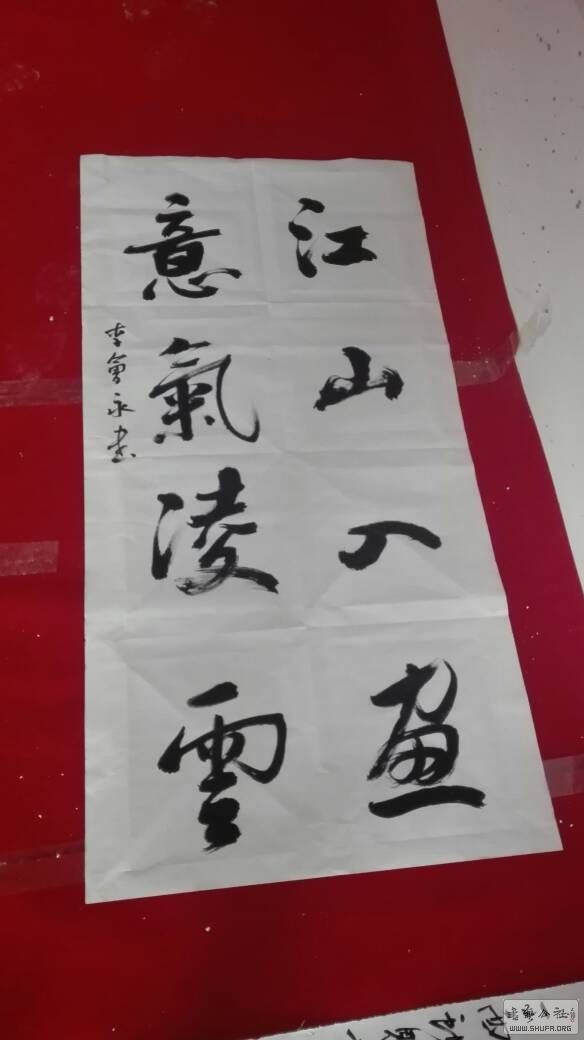 江山入画
意氣淩雲
李會永书
书艺公社
WWW.SHUFA.ORG